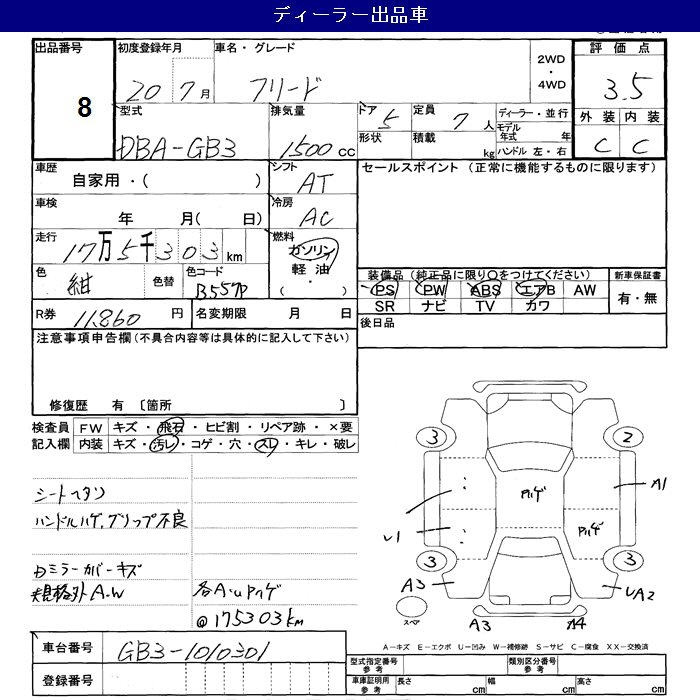 ディーラー出品車
出品番号 8
初度登録年月 20 7月
車名・グレード フリード
2WD・4WD
評価点 3.5
外装 C 内装 C
型式 DBA-GB3
排気量 1500cc
ドア 5 形状
定員 7人 積載 kg
ディーラー・並行
モデル年式 年
ハンドル 左・右
車歴 自家用・( )
シフト AT
セールスポイント (正常に機能するものに限ります)
車検 年 月( 日)
冷房 AC
走行 17万5千303km
燃料 ガソリン 軽油・( )
色 紺 色替 色コード B557P
装備品(純正品に限り○をつけてください)
PS PW ABS エアB AW
SR ナビ TV カワ
新車保証書 有・無
R券 11,860円
名変期限 月 日
後日品
注意事項申告欄(不具合内容等は具体的に記入して下さい)
修復歴 有 〔箇所 〕
検査員記入欄
FW キズ・飛石・ヒビ割・リペア跡・×要
内装 キズ・汚レ・コゲ・穴・スレ・キレ・破レ
シートヘタリ
ハンドルハゲ、グリップ不良
Dミラーカバーキズ
規格外A.W
各A・Uハゲ
@175303km
3 2
U1 Pハゲ A1
Pハゲ
3 3
A3 UA2
スペア A3 A4
A-キズ E-エクボ U-凹み W-補修跡 S-サビ C-腐食 XX-交換済
車台番号 GB3-1010301
登録番号
型式指定番号 参考
類別区分番号 参考
車庫証明用 参考 長さ cm 幅 cm 高さ cm